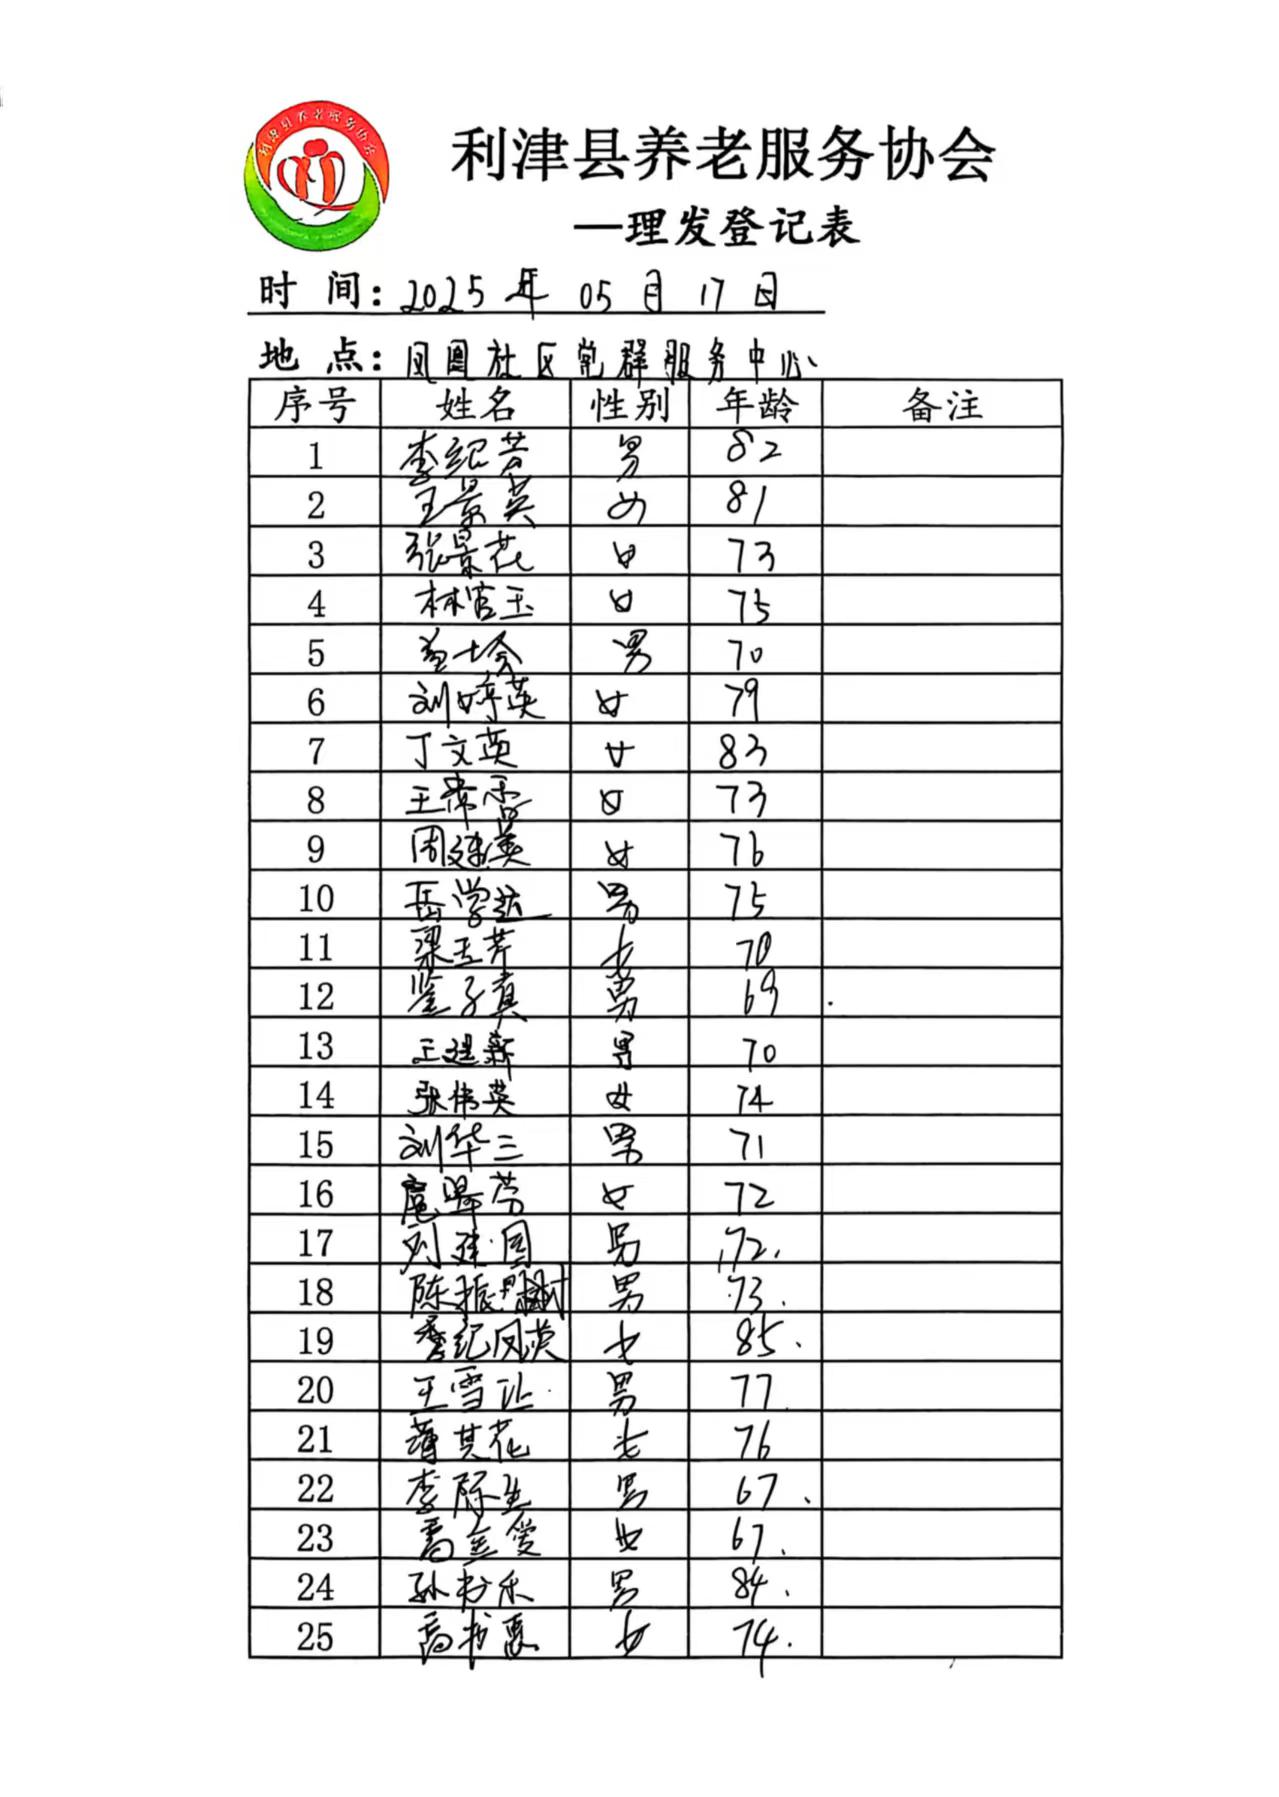 利津县养老服务协会
利津县养老服务协会
—理发登记表
时 间: 2025 年 05 月 17 日
地 点: 凤凰社区党群服务中心
序号 姓名 性别 年龄 备注
1 李纪芳 男 82
2 王景英 女 81
3 张景花 女 73
4 林官玉 女 75
5 男 70
6 刘婷英 女 79
7 丁文英 女 83
8 王常雪 女 73
9 周建英 女 76
10 岳学达 男 75
11 梁玉芹 女 70
12 子真 男 69
13 王建新 男 70
14 张伟英 女 74
15 刘华三 男 71
16 翠芳 女 72
17 刘建国 男 72
18 陈振树 男 73
19 纪凤英 女 85
20 王雪让 男 77
21 薄其花 女 76
22 李际生 男 67
23 高金爱 女 67
24 孙乐 男 84
25 高书惠 女 74